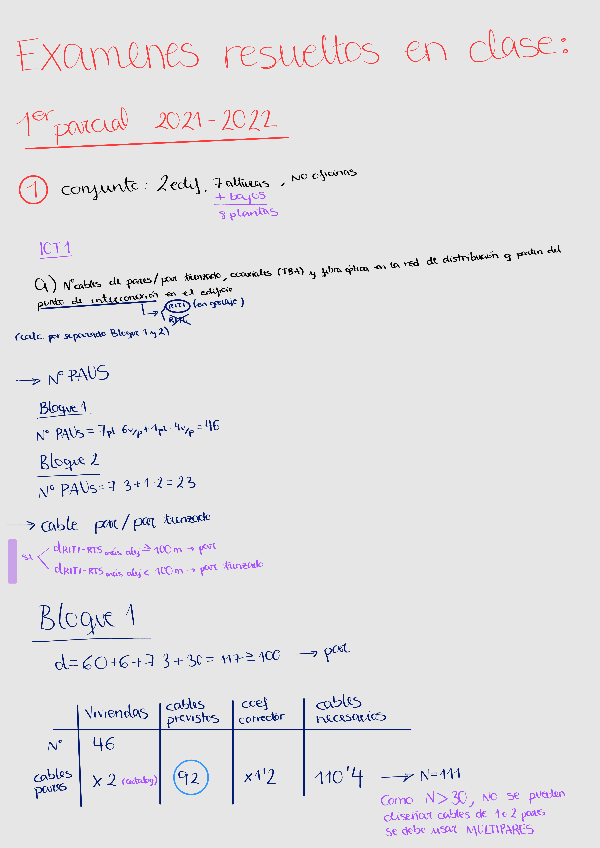 Examenes resueltos en clase:
1er parcial 2021-2022
1 conjunto: 2 edif, 7 alturas, NO oficinas
+ bajos
8 plantas
ICT 1
a) Nº cables de pares/par trenzado, coaxiales (TBA) y fibra óptica en la red de distribución a partir del
punto de interconexión en el edificio
→ RITI (en garaje)
(calc. por separado Bloque 1 y 2)
→ Nº PAUS
Bloque 1
Nº PAUs = 7pl · 6v/p + 1pl · 4v/p = 46
Bloque 2
Nº PAUs = 7·3+1·2 = 23
→ cable par/par trenzado
si
dRITI-RTS más alej ≥ 100m → par
dRITI-RTS más alej < 100m → par trenzado
Bloque 1
d = 60+6+7·3+30 = 117 ≥ 100 → par
Viviendas cables previstos coef corrector cables necesarios
Nº 46
cables pares x 2 92 x1'2 110'4 → N=111
Como N>30, NO se pueden
diseñar cables de 1 o 2 pares
se debe usar MULTIPARES